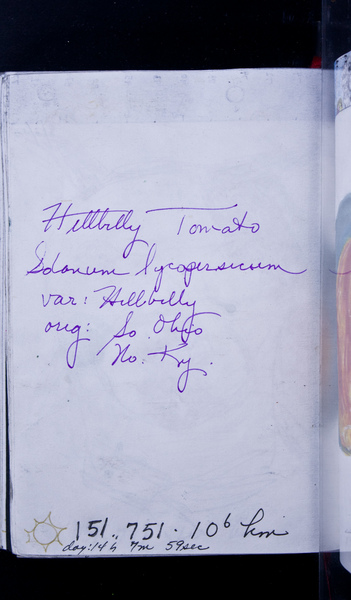 Hillbilly Tomato
Solanum lycopersicum
var: Hillbilly
orig: So. Ohio
No. Ky.
151.751 · 10⁶ km
day: 14h 7m 59sec